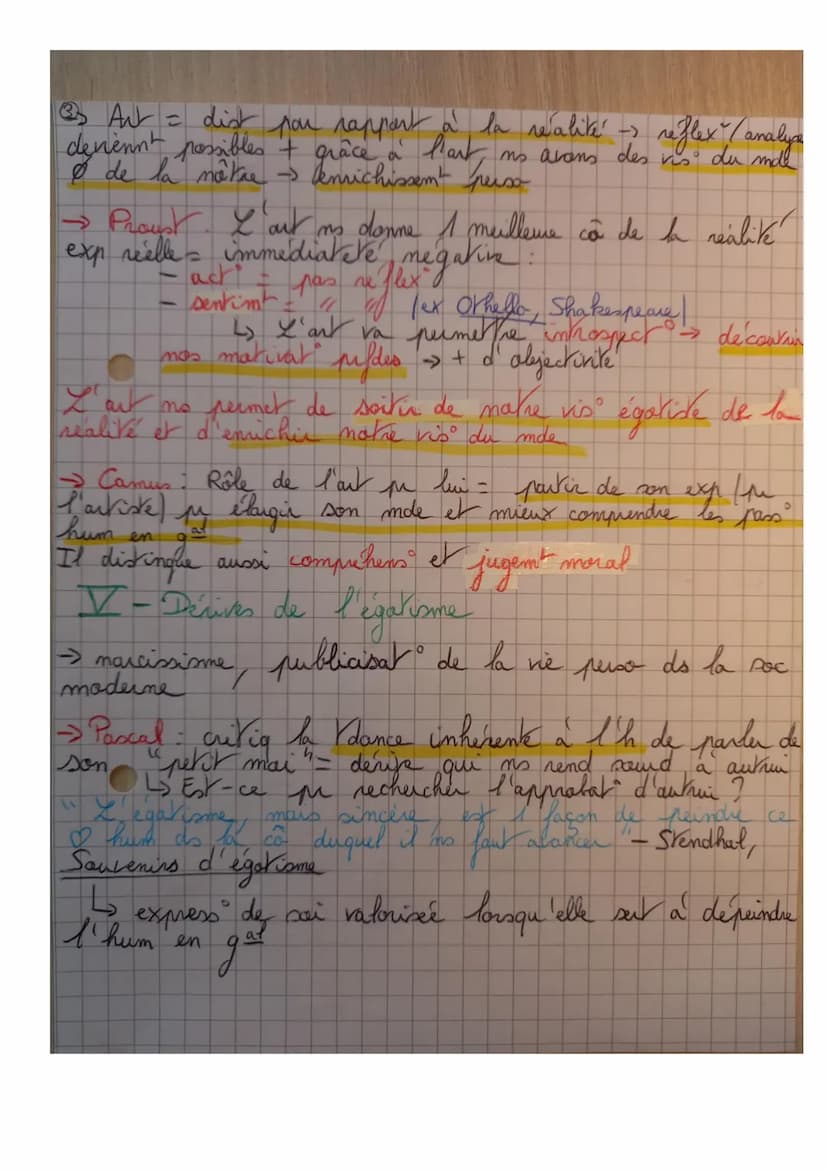 ③ Art = dist par rapport à la réalité → réflex°/analyse
deviennt possibles + grâce à l'art, ns avons des vis° du mde
≠ de la nôtre → enrichissemt perso
→ Proust. L'art ns donne 1 meilleure cô de la réalité
exp réelle = immédiateté, négative :
- act° = pas réflex°
- sentimt = " " (ex Othello, Shakespeare)
↳ L'art va permettre introspect° → découvrir
nos motivat° pfdes → + d'objectivité
L'art ns permet de sortir de notre vis° égotiste de la
réalité et d'enrichir notre vis° du mde
→ Camus : Rôle de l'art pr lui = partir de son exp (pr
l'artiste) pr élargir son mde et mieux comprendre les pass°
hum en gal
Il distingue aussi compréhens° et jugemt moral
V - Dérives de l'égotisme
→ narcissisme, publicisat° de la vie perso ds la soc
moderne
→ Pascal : critiq la tdance inhérente à l'h de parler de
son "petit moi" = dérive qui ns rend sourd à autrui
↳ Est-ce pr rechercher l'approbat° d'autrui ?
"L'égotisme, mais sincère, est 1 façon de peindre ce
♡ hum ds la cô duquel il ns faut avancer" - Stendhal,
Souvenirs d'égotisme
↳ express° de soi valorisée lorsqu'elle sert à dépeindre
l'hum en gal